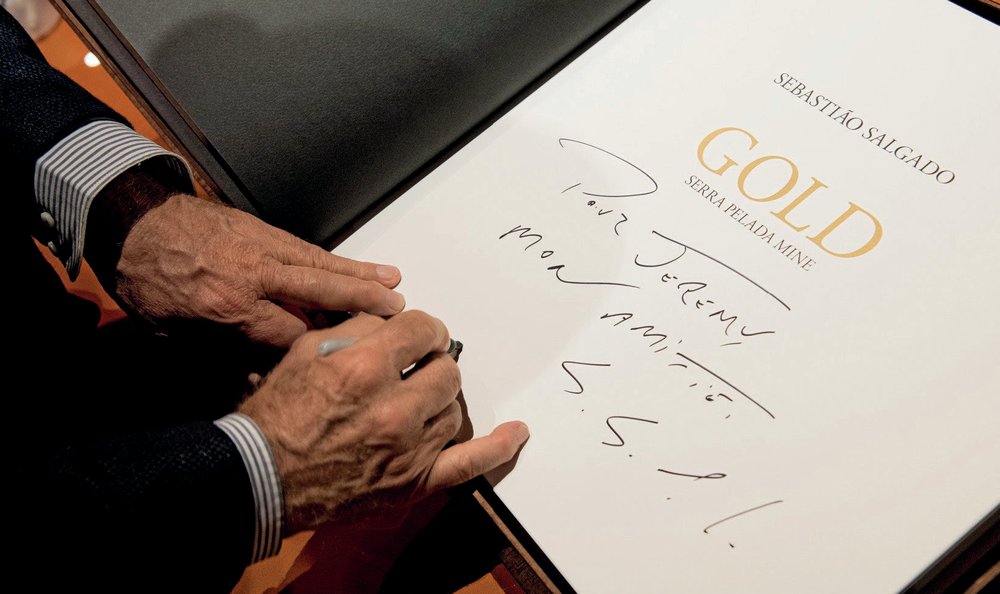 SEBASTIÃO SALGADO
GOLD
SERRA PELADA MINE
Pour JEREMY,
MON AMITIÉ.
S. S.